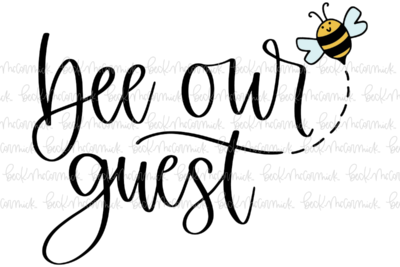 bee our
guest